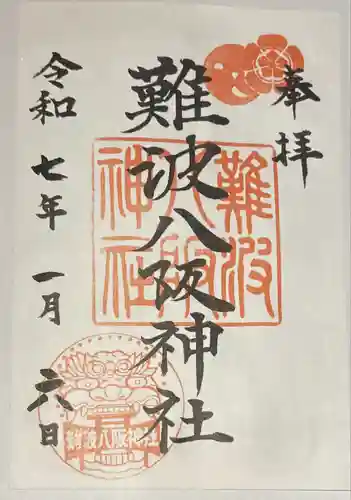 奉拝
難波八阪神社
令和七年一月六日
難波八阪神社
難波八阪神社